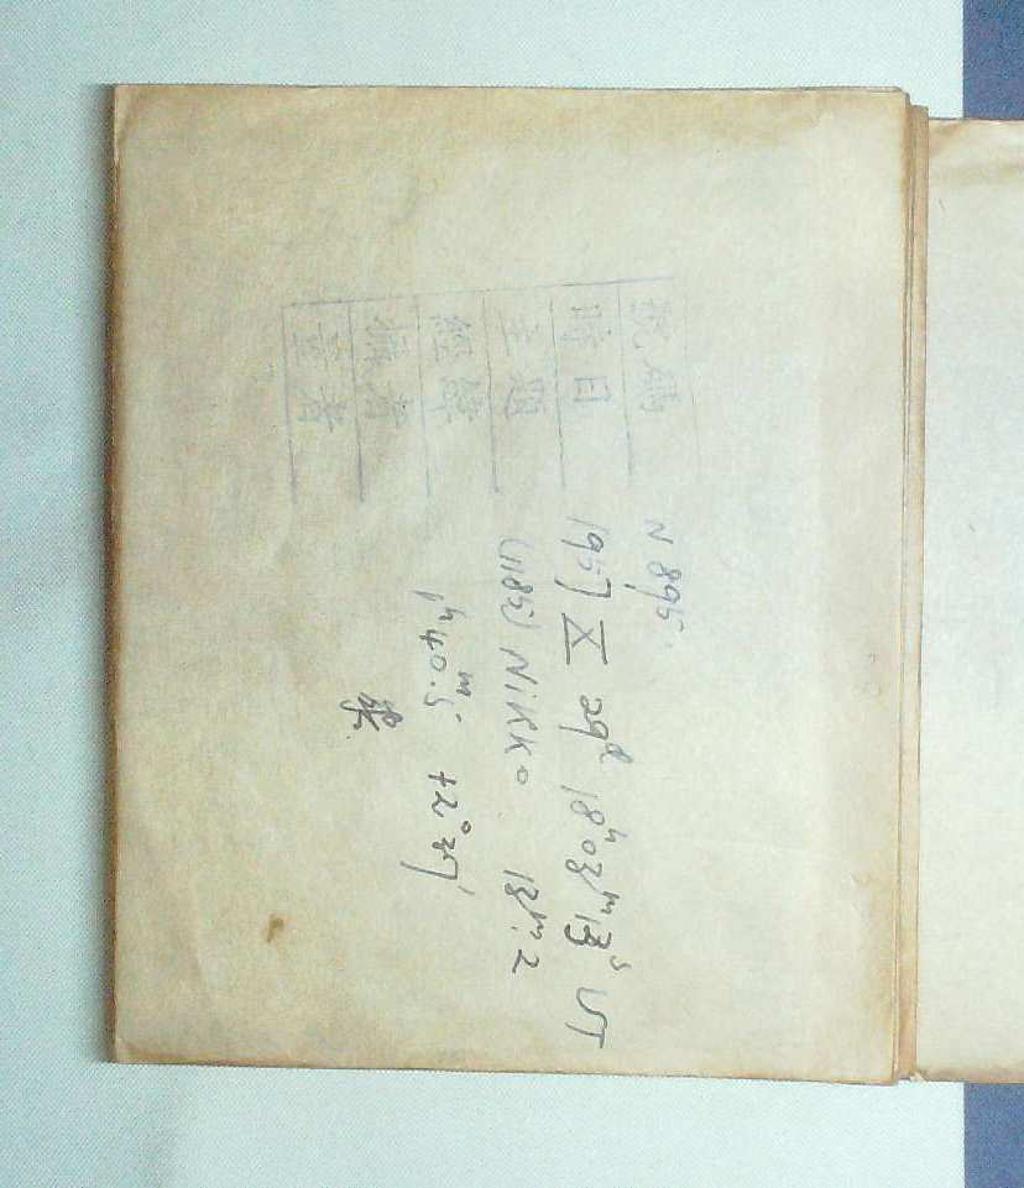 號碼 N 895
時日 1957 X 29ᵈ 18ʰ03ᵐ13ˢ UT
主題 (1185) Nikko 13ᵐ.2
經緯 1ʰ40ᵐ.5 +2°27'
攝者